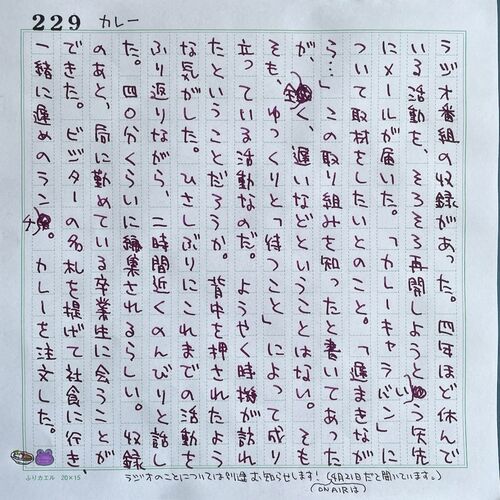 229 カレー
ラジオ番組の収録があった。四年ほど休んで
いる活動を、そろそろ再開しようという矢先
にメールが届いた。「カレーキャラバン」に
ついて取材をしたいとのこと。「遅まきなが
ら…」この取り組みを知ったと書いてあった
が、全く、遅いなどということはない。そも
そも、ゆっくりと「待つこと」によって成り
立っている活動なのだ。ようやく時機が訪れ
たということだろうか。背中を押されたよう
な気がした。ひさしぶりにこれまでの活動を
ふり返りながら、二時間近くのんびりと話し
た。四〇分くらいに編集されるらしい。収録
のあと、局に勤めている卒業生に会うことが
できた。ビジターの名札を提げて社食に行き、
一緒に遅めのランチ。カレーを注文した。
ふりカエル 20×15
ラジオのことについては別途お知らせします!(4月21日だと聞いています。)
(ON AIRは)